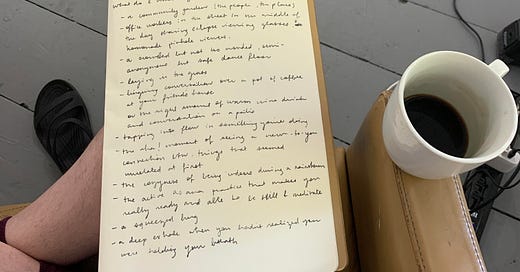 what do I
- a community garden (the people, the place)
- office workers in the street in the middle of
the day sharing eclipse viewing glasses &
homemade pinhole viewers.
- a crowded but not too crowded, semi-
anonymous but safe dance floor
- laying in the grass
- lingering conversations over a pot of coffee
at your friend's house
or the right amount of warm wine drunk
and inundation on a patio
- tapping into flow in something you're doing
- the aha! moment of seeing a new-to-you
connection btw. things that seemed
unrelated at first
- the coziness of being indoors during a rainstorm
- the active asana practice that makes you
really ready and able to be still & meditate
- a squeezed hug
- a deep exhale when you hadn't realized you
were holding your breath